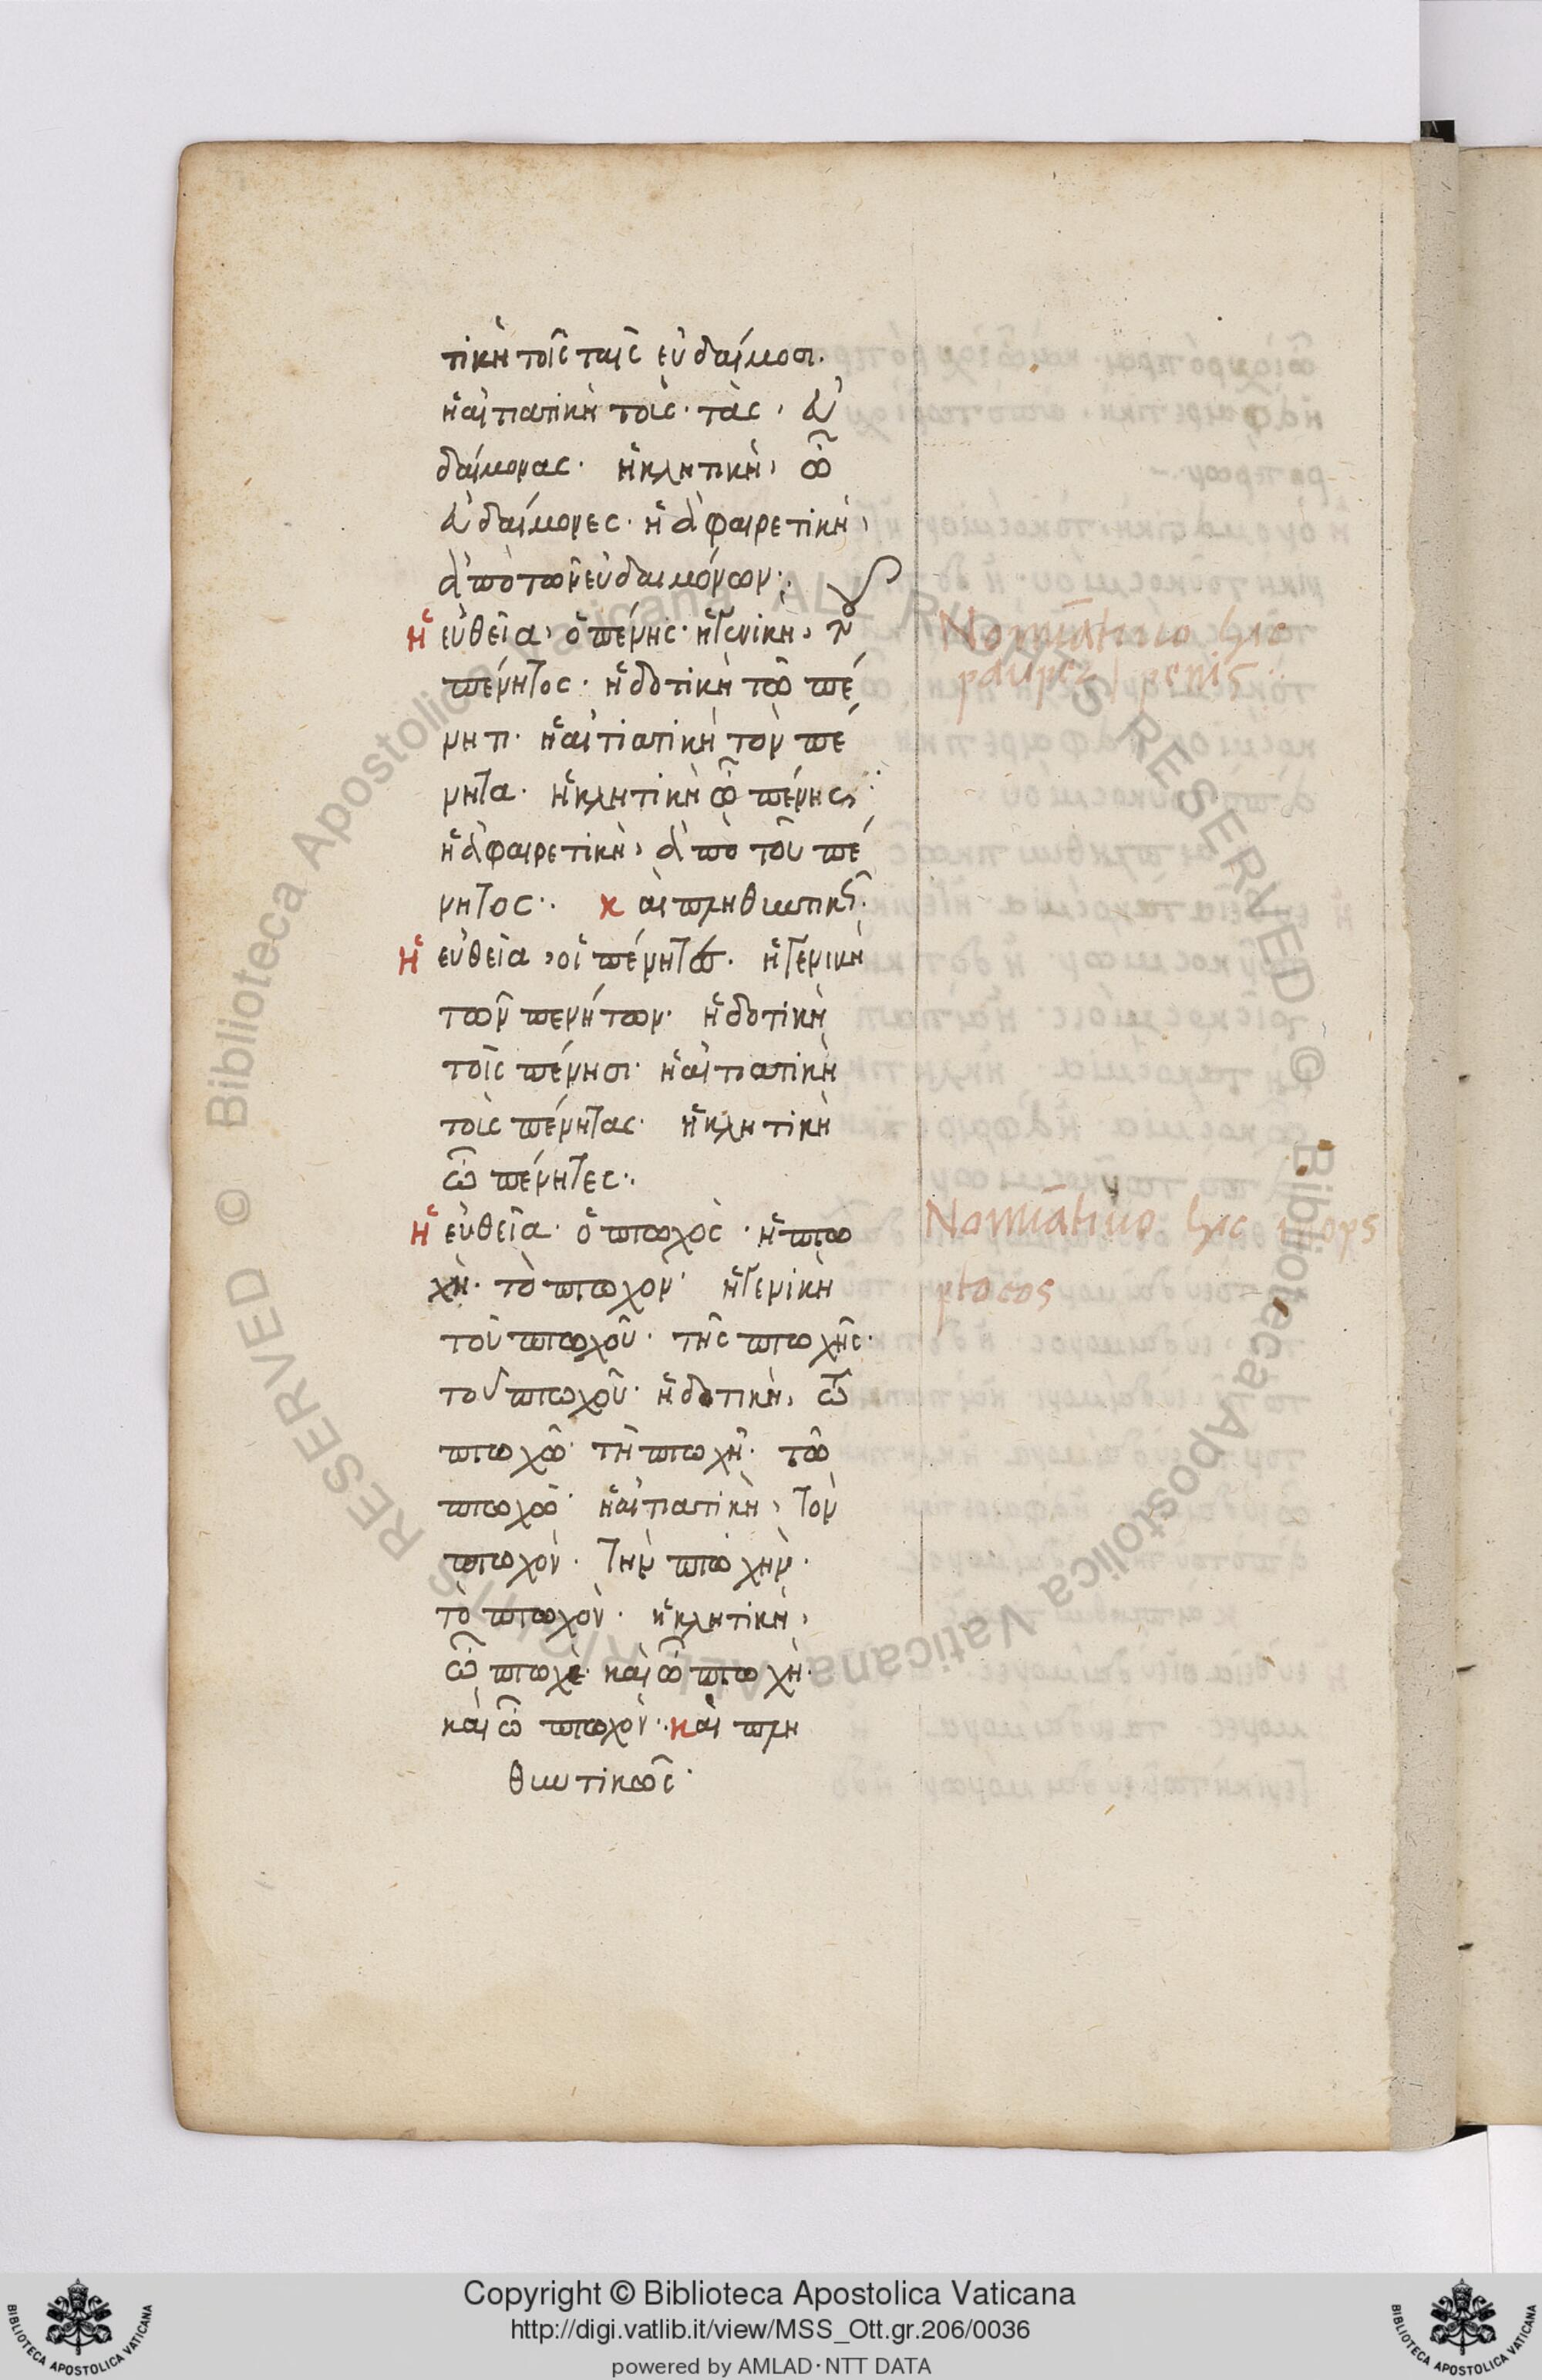 τικὴ τοῖς ταῖς εὐδαίμοσι.
ἡ αἰτιατικὴ τοὺς· τὰς, εὐ
δαίμονας· ἡ κλητικὴ, ὦ
εὐδαίμονες· ἡ ἀφαιρετικὴ,
ἀπὸ τῶν εὐδαιμόνων:
Ἡ εὐθεῖα, ὁ πένης· ἡ γενικὴ, τοῦ
πένητος· ἡ δοτικὴ τῶ πέ
νητι· ἡ αἰτιατικὴ τὸν πέ
νητα· ἡ κλητικὴ ὦ πένης:
ἡ ἀφαιρετικὴ, ἀπὸ τοῦ πέ
νητος:. κ αι πληθυντικῶς.
Ἡ εὐθεῖα, οἱ πένητες. ἡ γενικὴ
τῶν πενήτων· ἡ δοτικὴ
τοῖς πένησι· ἡ αἰτιατικὴ
τοὺς πένητας· ἡ κλητικὴ
ὦ πένητες:.
Ἡ εὐθεῖα· ὁ πτωχὸς· ἡ πτω
χὴ· τὸ πτωχὸν· ἡ γενικὴ
τοῦ πτωχοῦ· τῆς πτωχῆς·
τοῦ πτωχοῦ· ἡ δοτικὴ, τῶ
πτωχῶ· τῆ πτωχῆ· τῶ
πτωχῶ· ἡ αἰτιατικὴ, τὸν
πτωχὸν· τὴν πτωχὴν·
τὸ πτωχὸν· ἡ κλητικὴ,
ὦ πτωχὲ· καὶ ὦ πτωχὴ·
καὶ ὦ πτωχὸν:· καὶ πλη
θυντικῶς·
Nomiātiuo hic
pauper penis
Nomiātiuo hic inops
ptocos
Copyright © Biblioteca Apostolica Vaticana
http://digi.vatlib.it/view/MSS_Ott.gr.206/0036
powered by AMLAD·NTT DATA